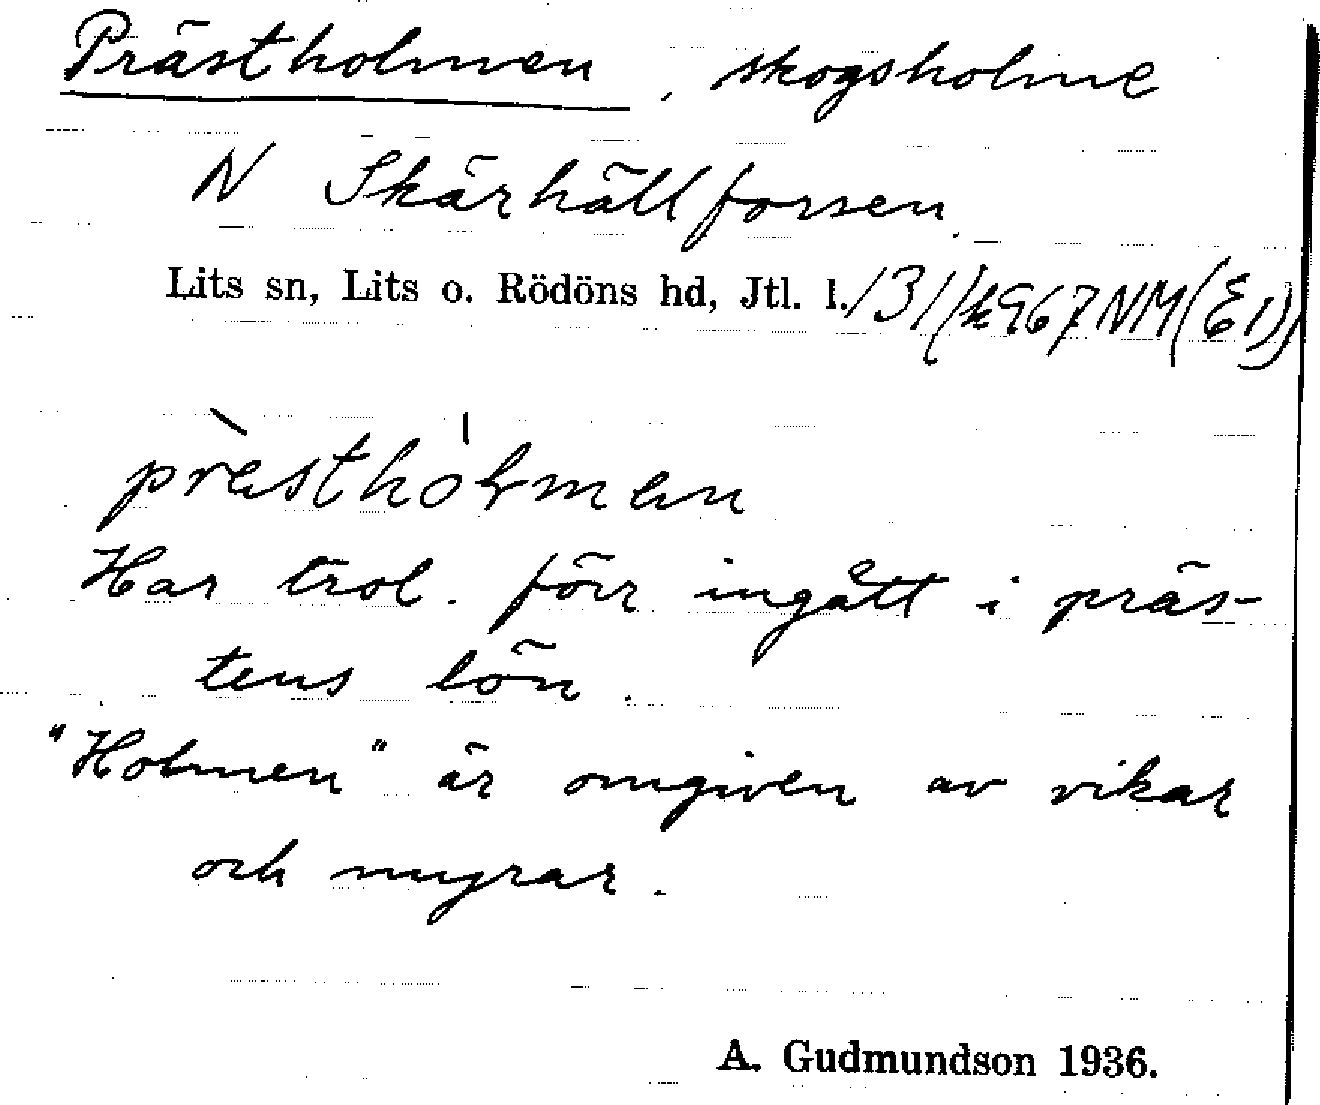 Prästholmen, skogsholme
N Skärhällforsen.
Lits sn, Lits o. Rödöns hd, Jtl. l. 131/k967NM(E1))
Har trol. förr ingått i präs-
tens lön.
"Holmen" är omgiven av vikar
och myrar.
A. Gudmundson 1936.